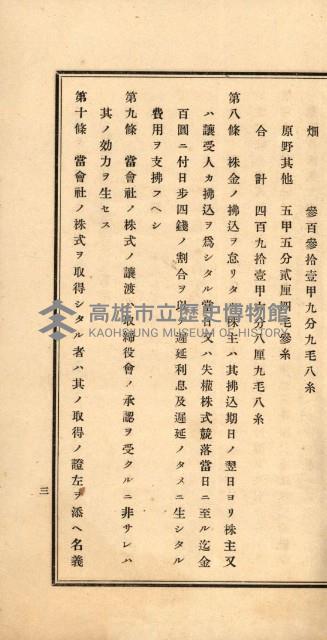 畑 參百參拾壹甲九分九毛八糸
原野其他 五甲五分貳厘四毛參糸
合計 四百九拾壹甲 分八厘九毛八糸
第八條 株金ノ拂込ヲ怠リタル株主ハ其拂込期日ノ翌日ヨリ株主又
ハ讓受人カ拂込ヲ爲シタル當日又ハ失權株式競落當日ニ至ル迄金
百圓ニ付日步四錢ノ割合ヲ以 遲延利息及遲延ノタメニ生シタル
費用ヲ支拂フヘシ
第九條 當會社ノ株式ノ讓渡ハ取締役會ノ承認ヲ受クルニ非サレハ
其ノ効力ヲ生セス
第十條 當會社ノ株式ヲ取得シタル者ハ其ノ取得ノ證左ヲ添ヘ名義
三
高雄市立歷史博物館
KAOHSIUNG MUSEUM OF HISTORY